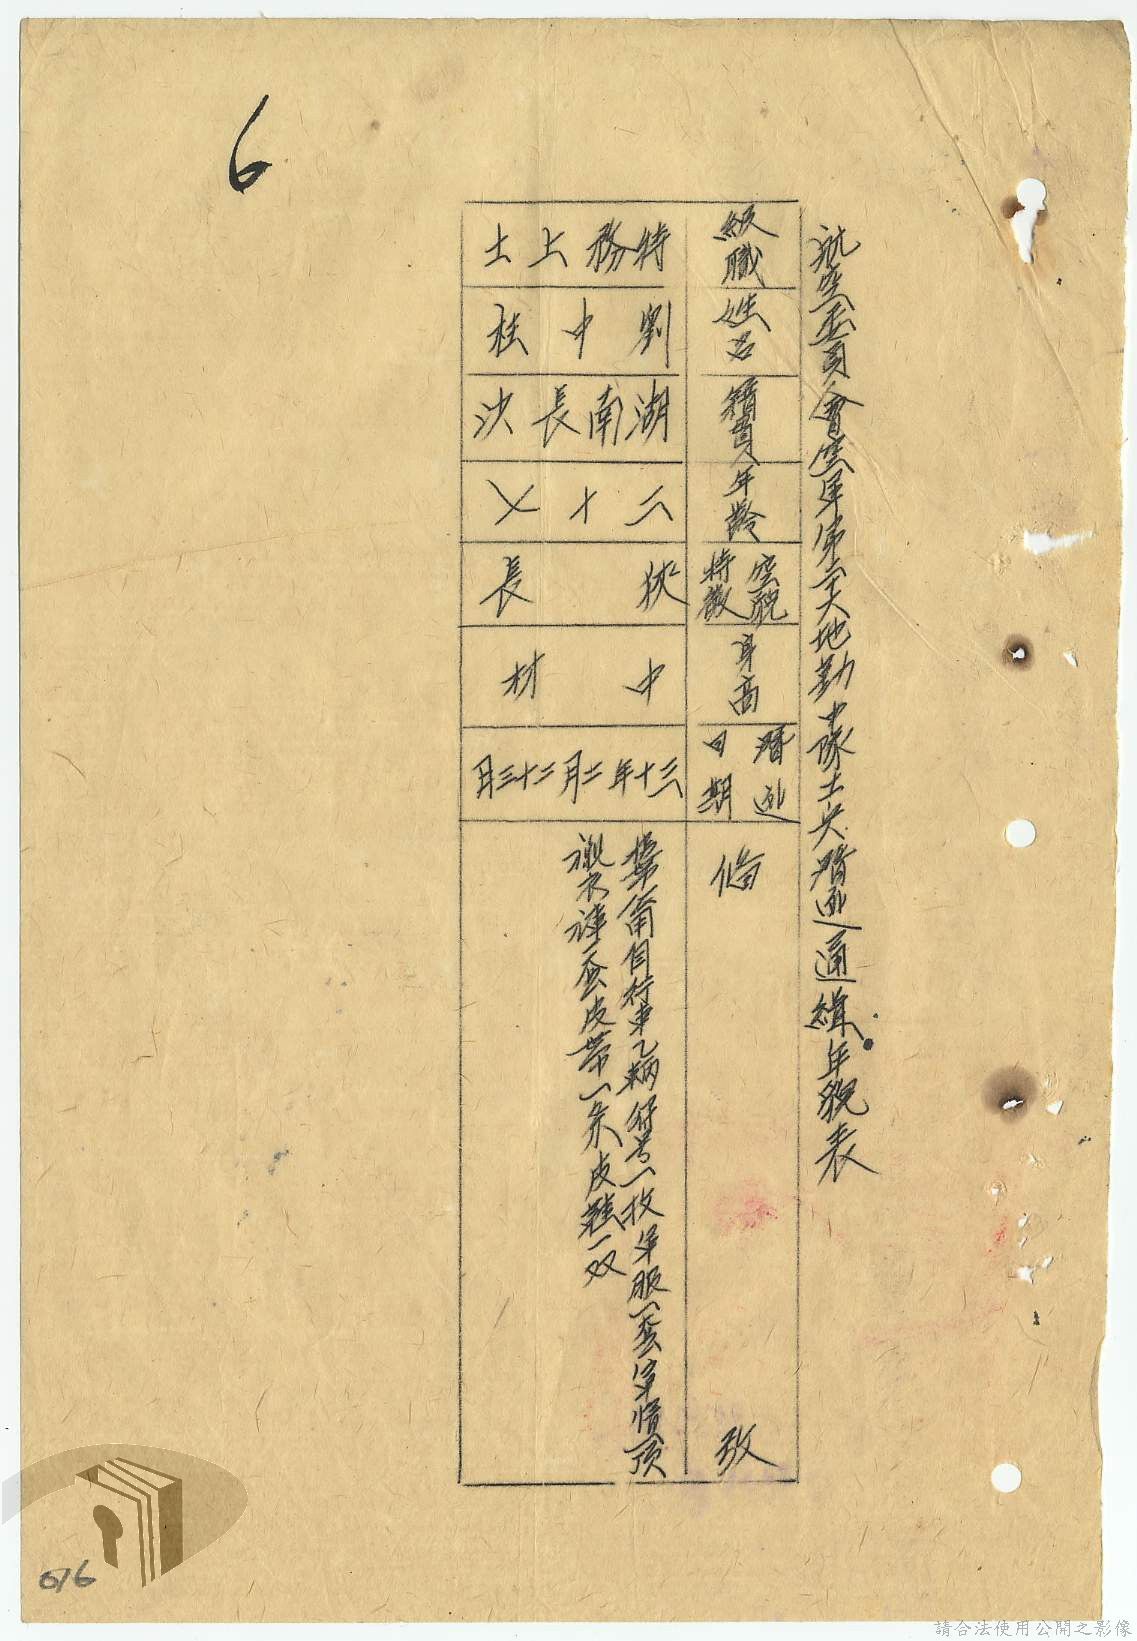 6
航空委員會空軍第三大地勤中隊士兵潛逃通緝年貌表
級職
特務上士
姓名
劉中桂
籍貫
湖南長沙
年齡
二十七
容貌特徵
狀長
身高
中材
潛逃日期
三十年二月二十三日
備考
攜帶自行車乙輛符号一枚軍服一套軍帽一頂
襯衣褲一套皮帶一条皮鞋一双
076
請合法使用公開之影像